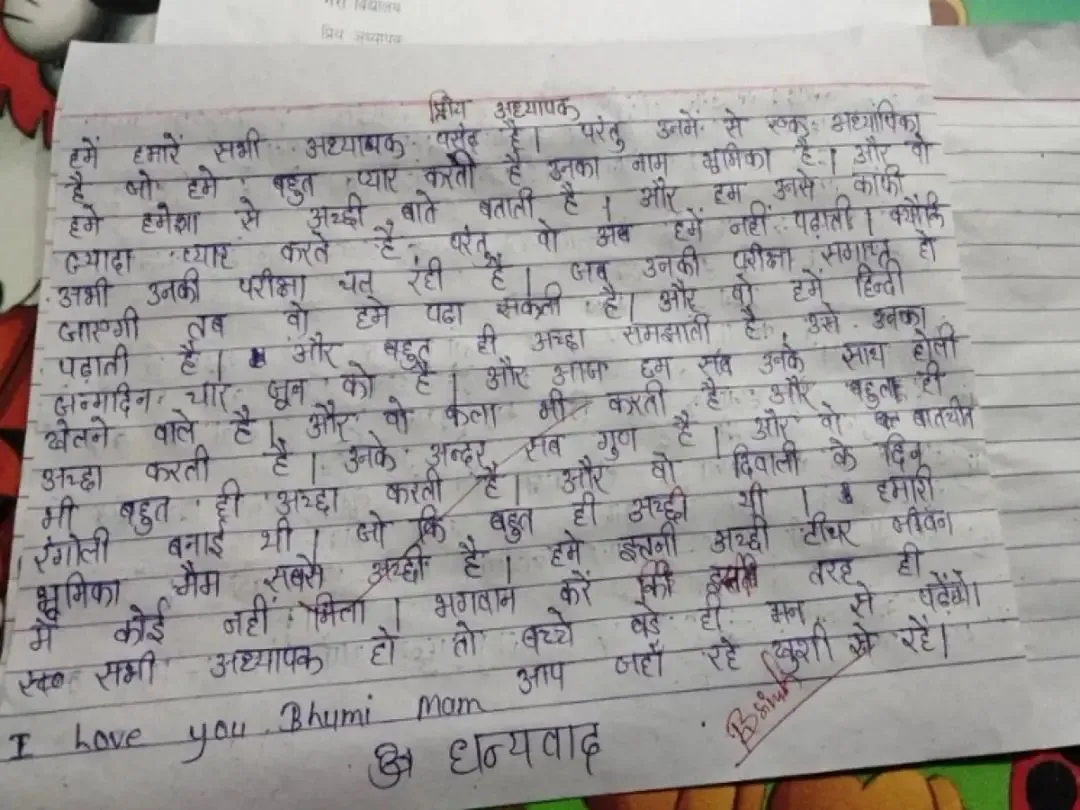 मेरा विद्यालय
प्रिय अध्यापक
प्रिय अध्यापक
हमें हमारें सभी अध्यापक पसंद है। परंतु उनमें से एक अध्यापिका
है जो हमे बहुत प्यार करती है उनका नाम भुमिका है। और वो
हमे हमेशा से अच्छी बाते बताती है। और हम उनसे काफी
ज्यादा प्यार करते है परंतु वो अब हमें नहीं पढ़ाती। क्योंकि
अभी उनकी परीक्षा चल रही है। जब उनकी परीक्षा समाप्त हो
जाएगी तब वो हमे पढ़ा सकती है। और वो हमें हिन्दी
पढ़ाती है। और बहुत ही अच्छा समझाती है उसे उनका
जन्मदिन चार जून को है। और आज हम सब उनके साथ होली
खेलने वाले है। और वो कला भी करती है और बहुत ही
अच्छा करती है। उनके अन्दर सब गुण है। और वो बातचीत
भी बहुत ही अच्छा करती है। और वो दिवाली के दिन
रंगोली बनाई थी। जो कि बहुत ही अच्छी थी। हमारी
भूमिका मैम सबसे अच्छी है। हमे इतनी अच्छी टीचर जीवन
में कोई नहीं मिला। भगवान करें की इसी तरह ही
सभी अध्यापक हो तो बच्चे बडे ही मन से पढ़ेंगे।
आप जहाँ रहे खुशी से रहें।
I Love you Bhumi Mam
धन्यवाद